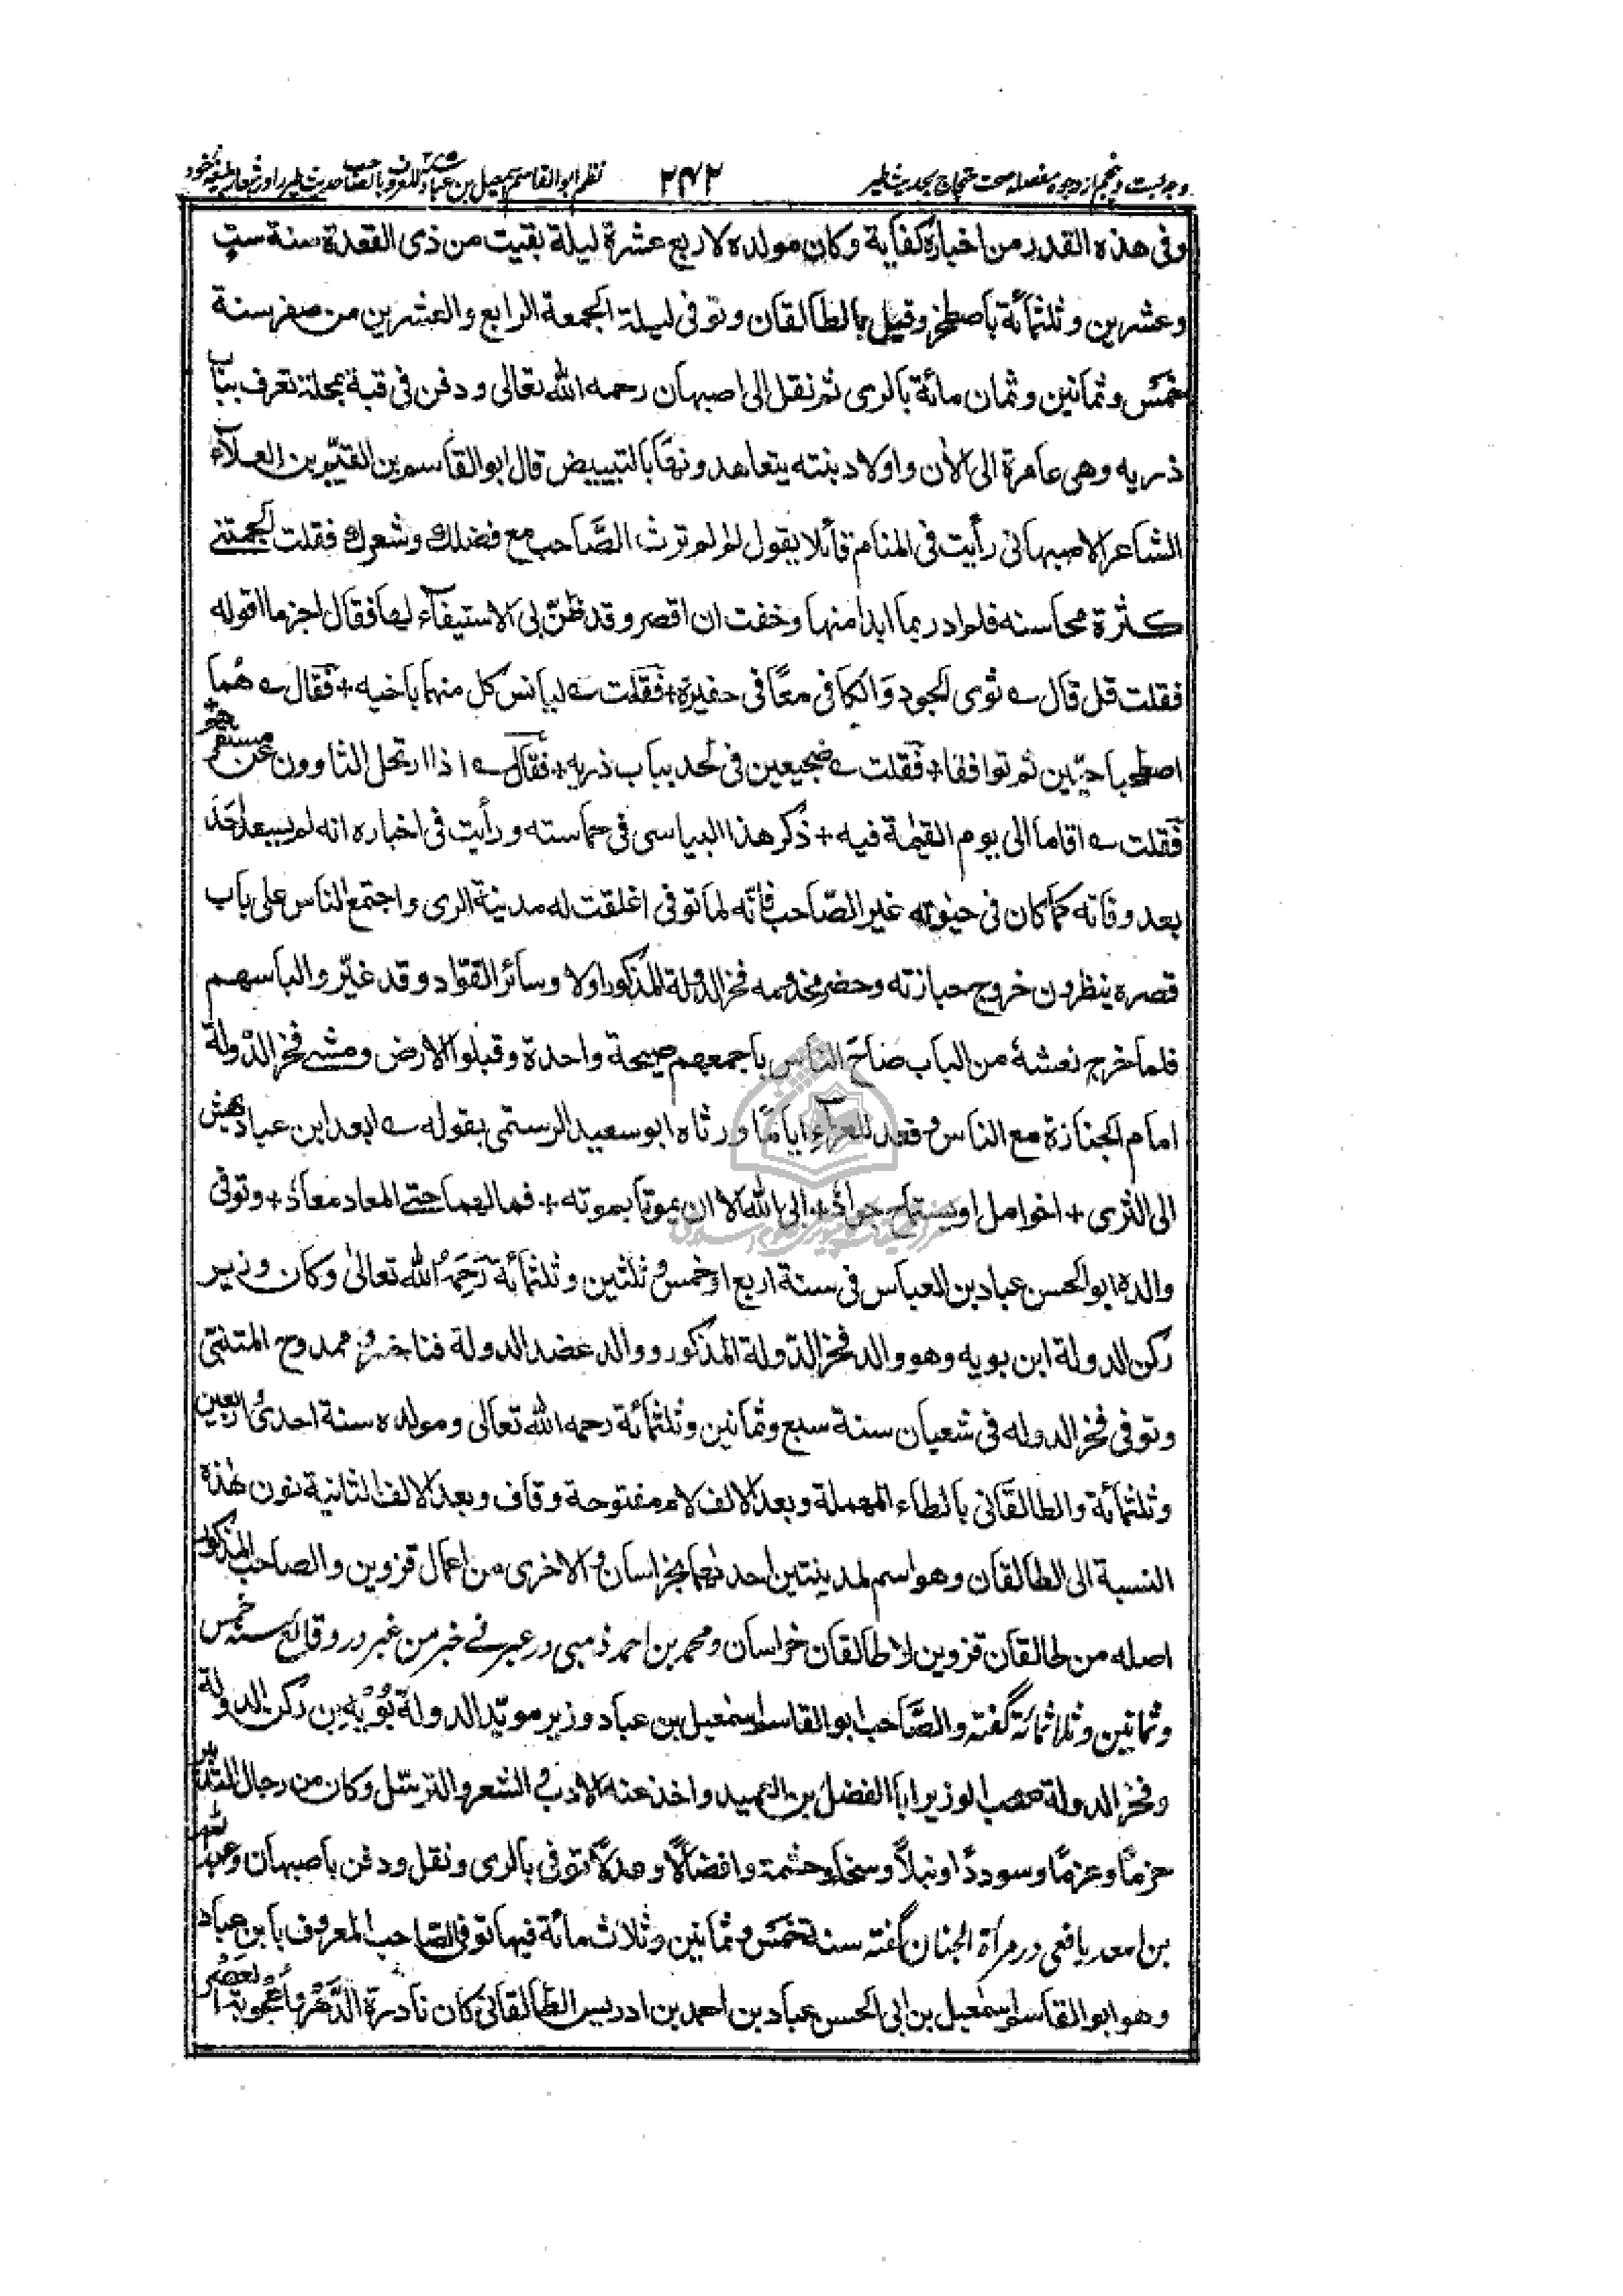 وجه بیست و پنجم از وجوه مفصله صحت احتجاج بحدیث طیر ۲۴۲ نظم ابو القاسم اسمعیل بن عباد المعروف بالصاحب حدیث طیر را در اشعار لطیفه خود
وفى هذه القدر من اخباره كفاية وكان مولده لاربع عشرة ليلة بقيت من ذى القعدة سنة ست
وعشرين وثلثمائة باصطخر وقيل بالطالقان وتوفى ليلة الجمعة الرابع والعشرين من صفر سنة
خمس وثمانين وثمان مائة بالرى ثم نقل الى اصبهان رحمه الله تعالى ودفن فى قبة بمحلة تعرف بباب
ذريه وهى عامرة الى الأن واولاد بنته يتعاهدونها بالتبييض قال ابو القاسم بن القيّوبن العلاء
الشاعر الاصبهانى رأيت فى المنام قائلا يقول لو لم ترث الصَّاحب مع فضلك وشعرك فقلت الجمتنے
كثرة محاسنه فلم ادر بما ابدا منها وخفت ان اقصر وقد ظنّ بى الاستيفآء لها فقال اجز ما اقوله
فقلت قل قال ے ثوى الجود والكافى معًا فى حفيرة + فقلت ے ليانس كل منهما باخيه + فقال ے هما
اصطحبا حيّين ثم توافقا + فقلت ے ضجيعين فى لحد بباب ذريه + فقال ے اذا ارتحل الثاوون عن مستقرهم +
فقلت ے اقاما الى يوم القيٰمة فيه + ذكر هذا البياسى فى حماسته ورأيت فى اخباره انه لم يسعد احَد
بعد وفاته كما كان فى حيٰوته غير الصّاحب فانّه لما توفى اغلقت له مدينة الرى واجتمع الناس على باب
قصره ينظرون خروج جنازته وحضر مخدومه فخر الدولة المذكور اولا وسائر القوّاد وقد غيّروا لباسهم
فلما خرج نعشهُ من الباب صاحَ الناس باجمعهم صيحة واحدة وقبلوا الارض ومشے فخر الدّولة
امام الجنازة مع الناس وقعد للعزآءِ ايامًا ورثاه ابو سعيد الرستمى بقوله ے ابعد ابن عباد يهش
الى الثرى + اخو امل او يستماح جواد + ابى الله الا ان يموتا بموته + فما لهما حتے المعاد معاد + وتوفى
والده ابو الحسن عباد بن العباس فى سنة اربع او خمس وثلثين وثلثمائة رَحِمَهُ الله تعالىٰ وكان وزير
ركن الدولة ابن بويه وهو والد فخر الدّولة المذكور ووالد عضد الدولة فناخسرو ممدوح المتنبّى
وتوفى فخر الدوله فى شعبان سنة سبع وثمانين وثلثمائة رحمه الله تعالى ومولده سنة احدى واربعين
وثلثمائة والطالقانى بالطاء المهملة وبعد الالف لام مفتوحة وقاف وبعد الالف الثانية نون هٰذه
النسبة الى الطالقان وهو اسم لمدينتين احدٰهما بخراسان والاخرى من اعمال قزوين والصاحب المذكور
اصله من طالقان قزوين لا طالقان خراسان ومحمد بن احمد ذهبى در عبر فے خبر من غبر در وقائع سنه خمس
وثمانين وثلاثمائة گفته والصَّاحب ابو القاسم اسمٰعيل بن عباد وزير مويّد الدولة بُوَيْه بن ركن الدولة
وفخر الدولة صحب الوزير ابا الفضل بن العميد واخذ عنه الادب والشعر والترسّل وكان من رجال الدهر
حزمًا وعزمًا وسوددًا ونبلاً وسخاء وحشمة وافضالاً وعدلاً توفى بالرى ونقل ودفن باصبهان وعبد الله
بن اسعد يافعى در مرآة الجنان گفته سنة خمَس وثمانين وثلاث مائة فيها توفى الصّاحب المعروف بابن عباد
وهو ابو القاسم اسمٰعيل بن ابى الحسن عباد بن احمد بن ادريس الطالقانى كان نادرة الدَّهْرِ واُعْجُوبَة العَصْرِ